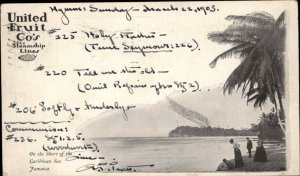 Hymns: Sunday - March 22, 1903.
United
Fruit
Co's
Steamship
Lines
#225 Holy Father
(Tune Seymour: 226)
#220 Tell me the old -
(Omit Refrain
#206 Softly &
Communion:
#236.
(Woodworth)
On the Shore of the
Caribbean Sea
Jamaica